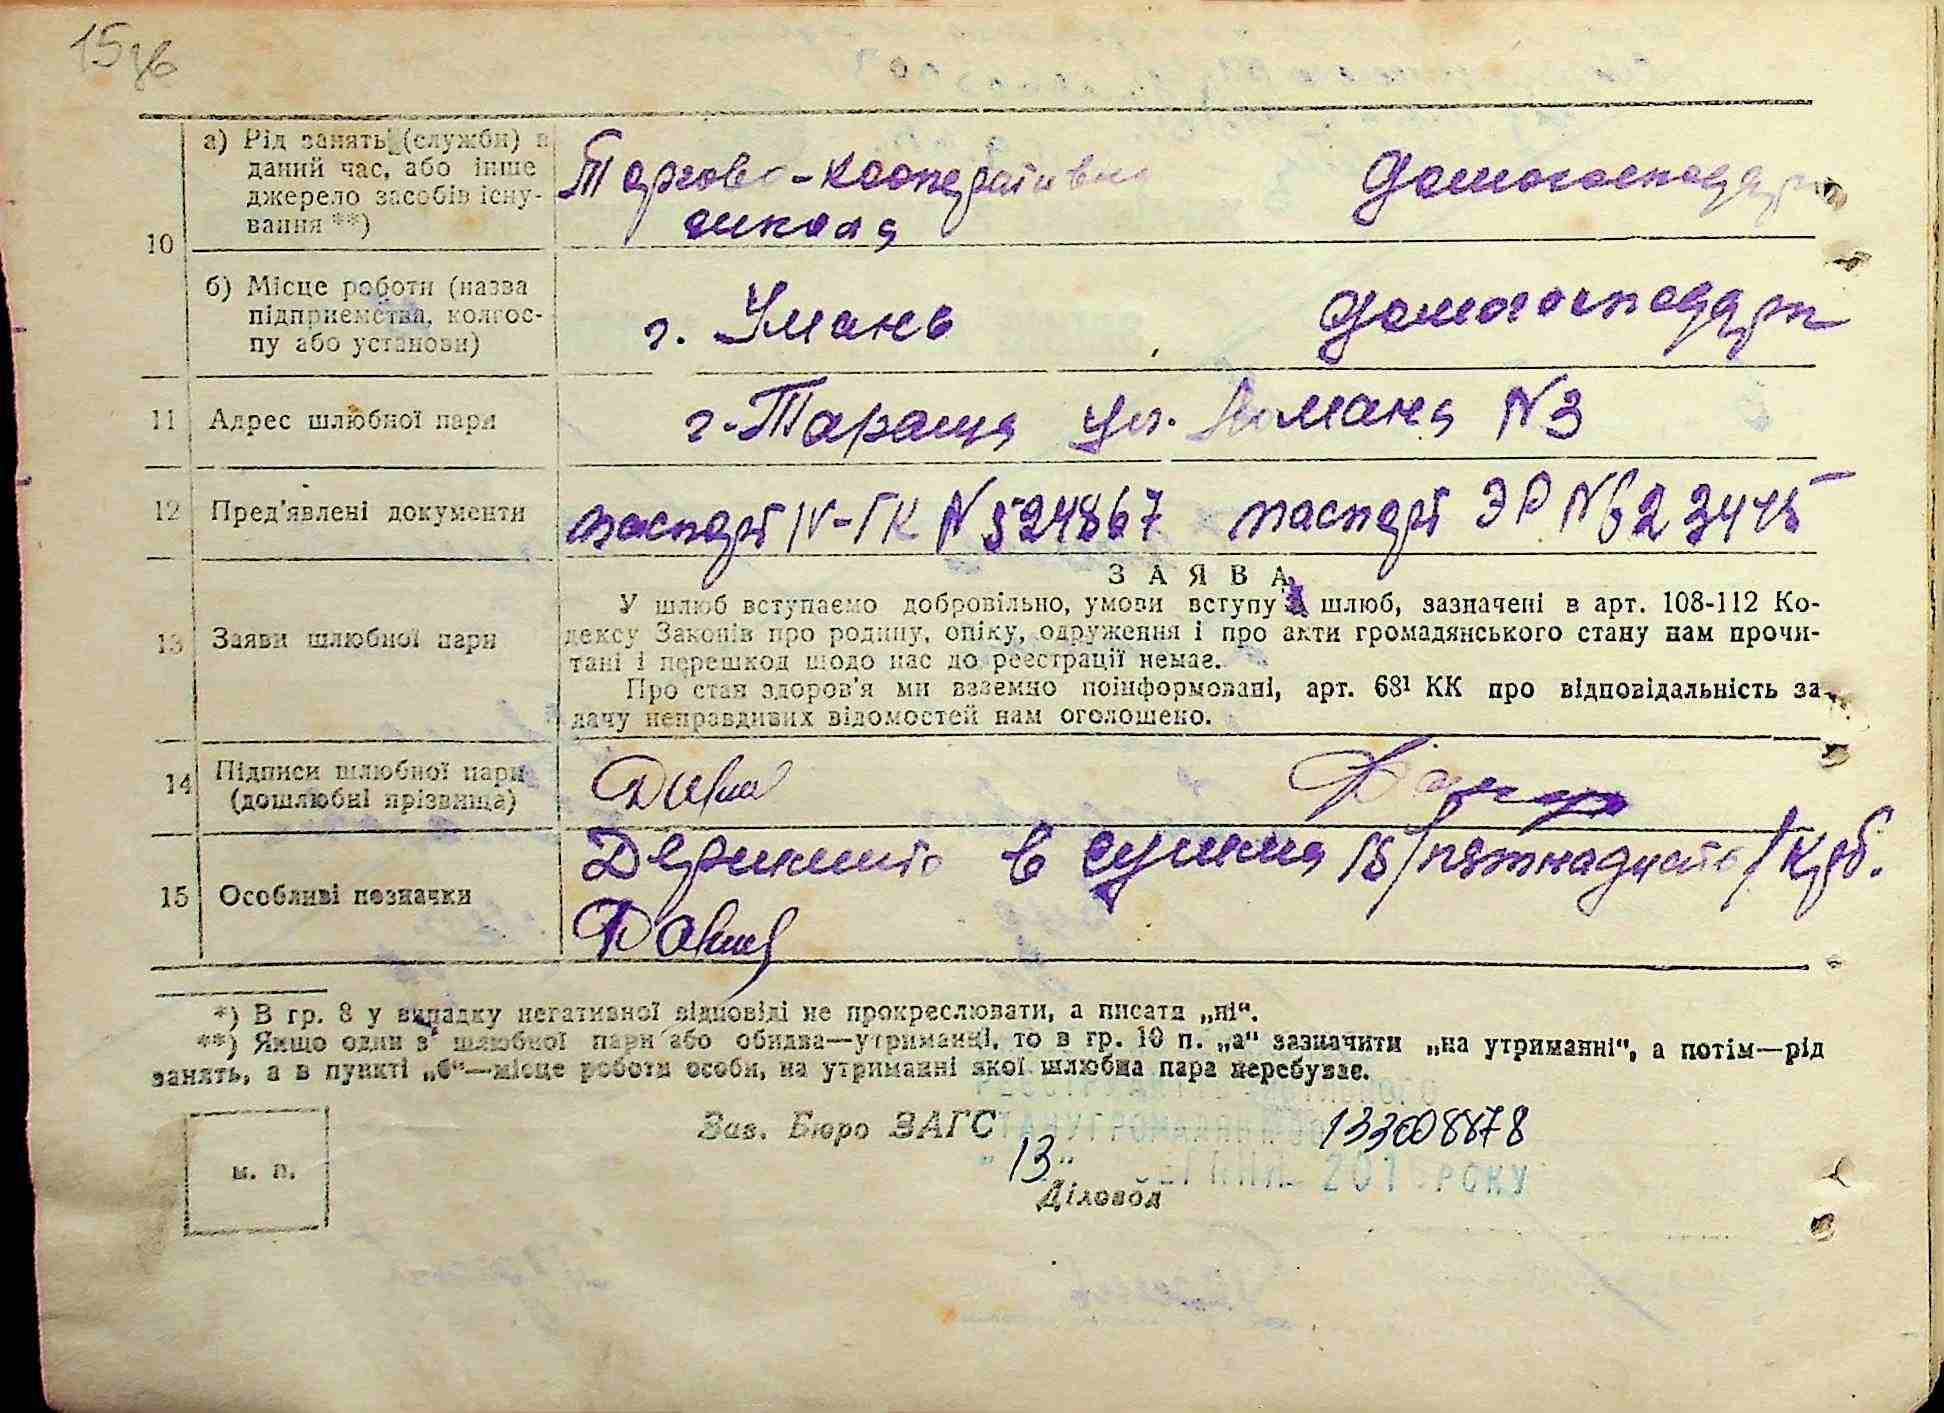 15 зв
10
а) Рід занять (служби) в
даний час, або інше
джерело засобів існу-
вання **)
Торгово-кооперативна
школа
домогосподарк
б) Місце роботи (назва
підприємства, колгос-
пу або установи)
г. Умань
домогосподарк
11 Адрес шлюбної пари
г. Тараща ул. N3
12 Пред'явлені документи
паспорт IV-ГК N 524867 паспорт ЭР N 623445
13 Заяви шлюбної пари
ЗАЯВА
У шлюб вступаємо добровільно, умови вступу в шлюб, зазначені в арт. 108-112 Ко-
дексу Законів про родину, опіку, одруження і про акти громадянського стану нам прочи-
тані і перешкод щодо нас до реєстрації немає.
Про стан здоров'я ми взаємно поінформовані, арт. 68¹ КК про відповідальність за
дачу неправдивих відомостей нам оголошено.
14 Підписи шлюбної пари
(дошлюбні прізвища)
15 Особливі позначки
в сумма 15/пятнадцать/ крб.
*) В гр. 8 у випадку негативної відповіді не прокреслювати, а писати „ні“.
**) Якщо один з шлюбної пари або обидва—утриманці, то в гр. 10 п. „а“ зазначити „на утриманні“, а потім—рід
занять, а в пункті „б“—місце роботи особи, на утриманні якої шлюбна пара перебуває.
м. п.
Зав. Бюро ЗАГС
133008878
"13" 201 РОКУ
Діловод